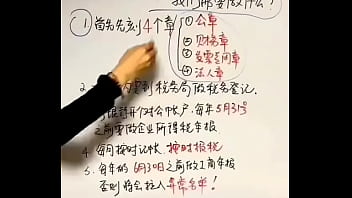 我们都要做什么?
① 首先先刻4个章
① 公章
② 财务章
③ 发票专用章
④ 法人章
2. 内要到税务局做税务登记.
银行开1个对公帐户.每年5月31号
之前要做企业所得税年报
4. 每月按时记帐.按时报税
5. 每年的6月30日之前做工商年报
否则将会拉入异常名单!